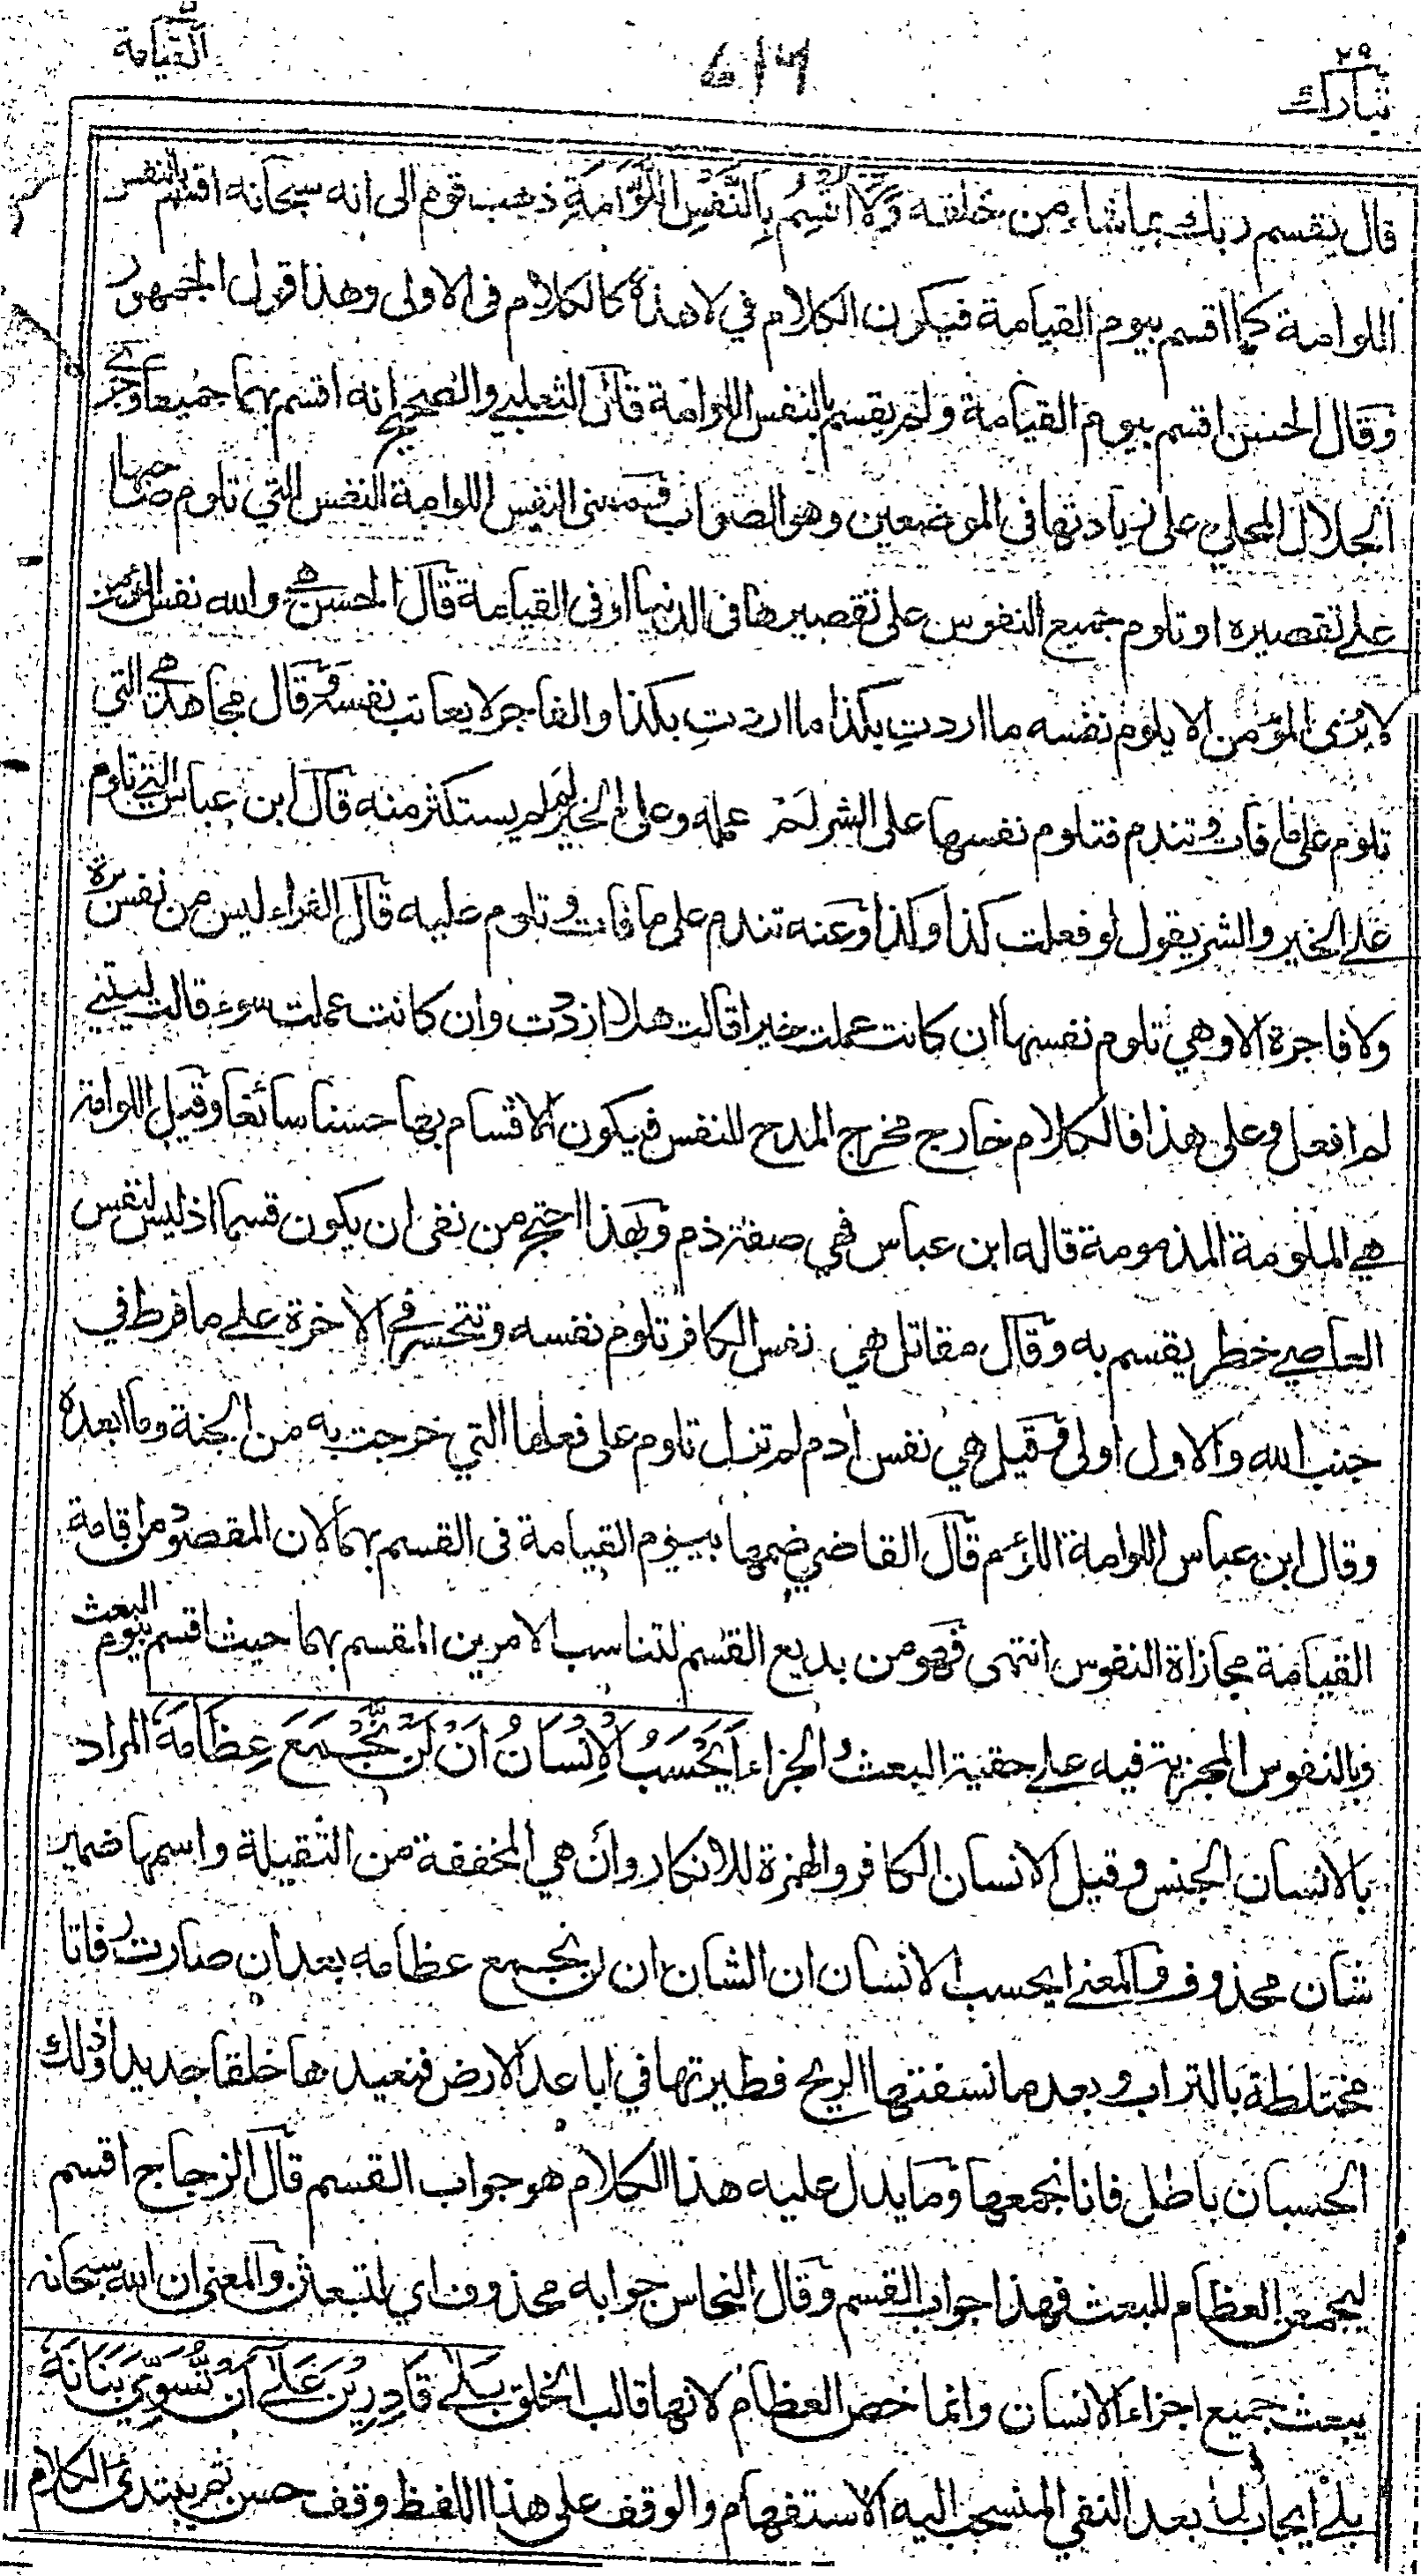 القيامة
٢٩
تبارك
قال يقسم ربك بما شاء من خلقه وَلَا أُقْسِمُ بِالنَّفْسِ اللَّوَّامَةِ ذهب قوم الى انه سبحانه اقسم بالنفس
اللوامة كما اقسم بيوم القيامة فيكون الكلام في لا هذه كالكلام فى الاولى وهذا قول الجمهور
وقال الحسن اقسم بيوم القيامة ولم يقسم بالنفس اللوامة قال الثعلبي والصحيح انه اقسم بهما جميعا وجرى
الجلال المحلي على زيادتها فى الموضعين وهو الصواب ومعنى النفس اللوامة النفس التي تلوم صاحبها
على تقصيره او تلوم جميع النفوس على تقصيرها فى الدنيا او فى القيامة قال الحسن هي والله نفس المؤمن
لا يُرى المؤمن الا يلوم نفسه ما اردتِ بكذا ما اردتِ بكذا والفاجر لا يعاتب نفسه وقال مجاهد هي التي
تلوم على ما فات وتندم فتلوم نفسها على الشر لم عمله وعلى الخير لم لم يستكثر منه قال ابن عباس التي تلوم
على الخير والشر يقول لو فعلت كذا وكذا وعنه تندم على ما فات وتلوم عليه قال الفراء ليس من نفس برة
ولا فاجرة الا وهي تلوم نفسها ان كانت عملت خيرا قالت هلا ازددت وان كانت عملت سوء قالت ليتني
لم افعل وعلى هذا فالكلام خارج مخرج المدح للنفس فيكون الاقسام بها حسنا سائغا وقيل اللوامة
هي الملومة المذمومة قاله ابن عباس فهي صفة ذم وبهذا احتج من نفى ان يكون قسما اذ ليس لنفس
العاصي خطر يقسم به وقال مقاتل هي نفس الكافر تلوم نفسه وتتحسر في الآخرة على ما فرط في
جنب الله والاول اولى وقيل هي نفس آدم لم تزل تلوم على فعلها التي خرجت به من الجنة وما ابعده
وقال ابن عباس اللوامة اللؤم قال القاضي ضمها بيوم القيامة فى القسم بهما لان المقصود من اقامة
القيامة مجازاة النفوس انتهى فهو من بديع القسم لتناسب الامرين المقسم بهما حيث اقسم بيوم البعث
وبالنفوس المجزية فيه على حقية البعث والجزاء أَيَحْسَبُ الْإِنْسَانُ أَنْ لَنْ نَجْمَعَ عِظَامَهُ المراد
بالانسان الجنس وقيل الانسان الكافر والهمزة للانكار وأن هي المخففة من الثقيلة واسمها ضمير
شان محذوف والمعنى ايحسب الانسان ان الشان ان لن نجمع عظامه بعد ان صارت رفاتا
مختلطة بالتراب وبعد ما نسفتها الريح فطيرتها في اباعد الارض فنعيدها خلقا جديدا وذلك
الحسبان باطل فانا نجمعها وما يدل عليه هذا الكلام هو جواب القسم قال الزجاج اقسم
ليجمعن العظام للبعث فهذا جواب القسم وقال النحاس جوابه محذوف اي لتبعثن والمعنى ان الله سبحانه
يبعث جميع اجزاء الانسان وانما خص العظام لانها قالب الخلق بَلَى قَادِرِينَ عَلَى أَنْ نُسَوِّيَ بَنَانَهُ
بلى ايجاب لما بعد النفي المنسحب اليه الاستفهام والوقف على هذا اللفظ وقف حسن ثم يبتدئ الكلام